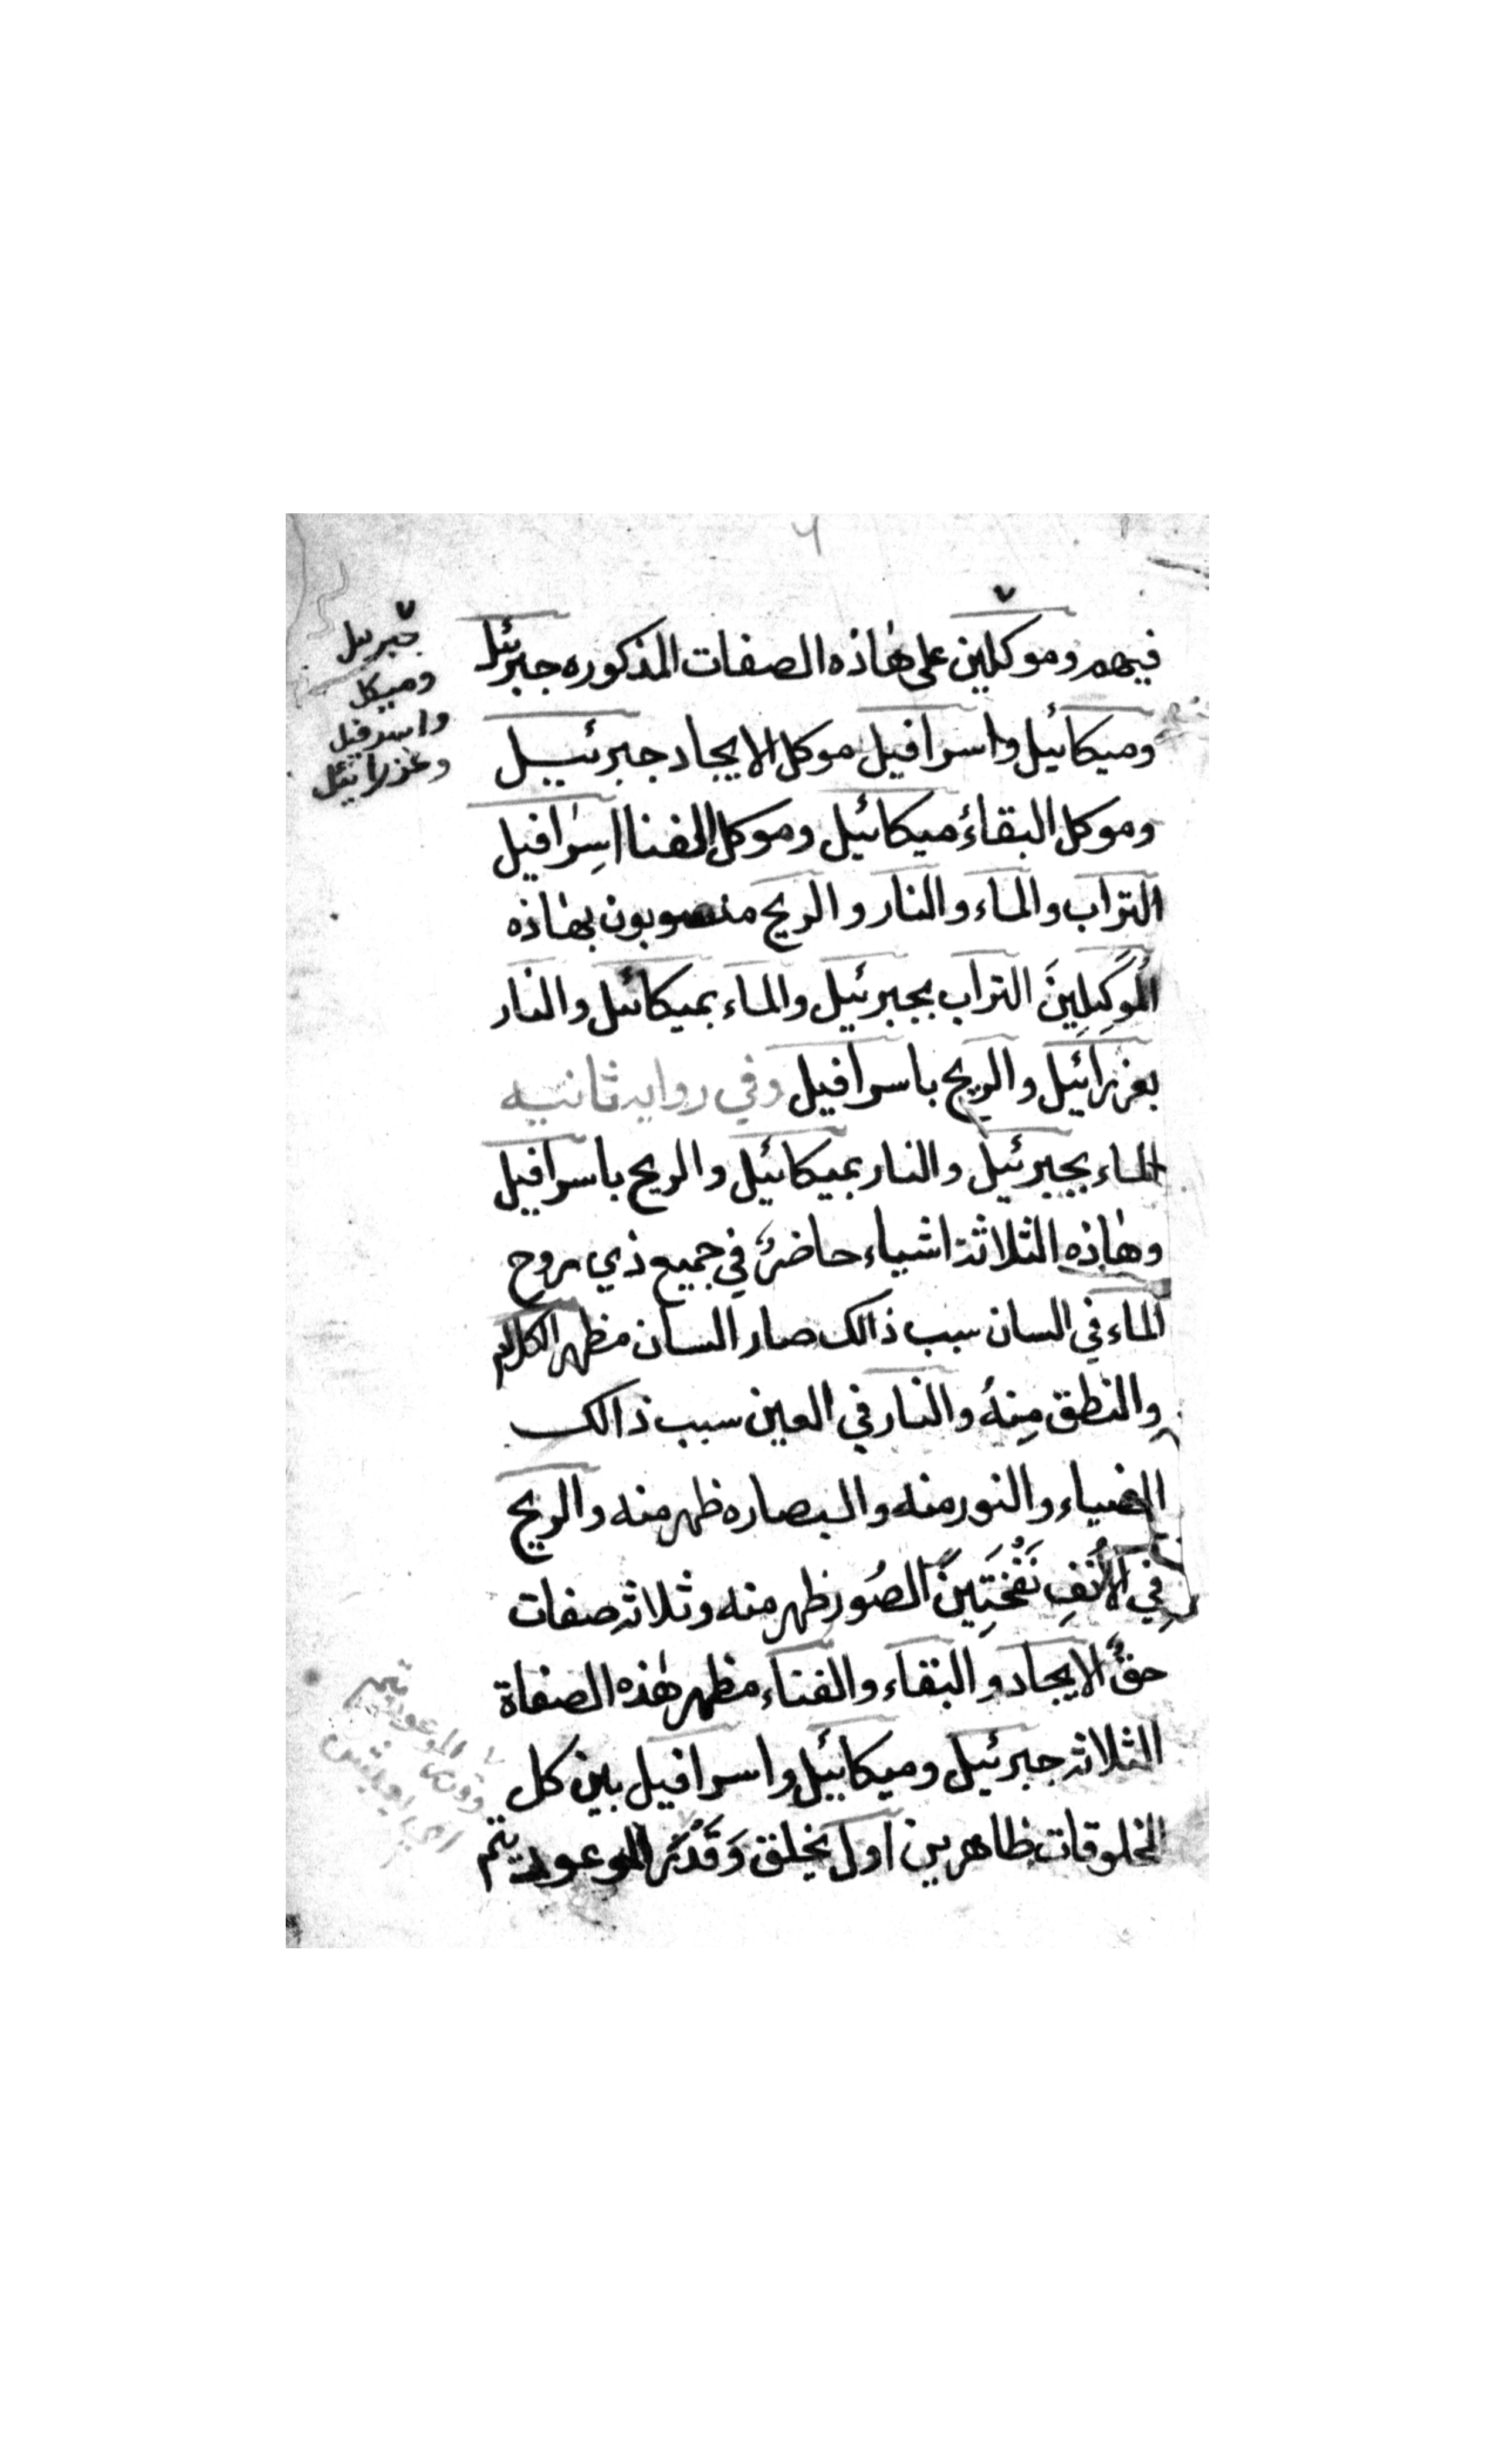 فيهم وموكلين على هاذه الصفات المذكوره جبرئيل
وميكائيل واسرافيل موكل الايجاد جبرئيل
وموكل البقاء ميكائيل وموكل الفنا اسرافيل
التراب والماء والنار والريح منصوبون بهاذه
المُوَكِلِينَ التراب بجبرئيل والماء بميكائيل والنار
بعزرائيل والريح باسرافيل وفي روايه ثانيه
الماء بجبرئيل والنار بميكائيل والريح باسرافيل
وهاذه الثلاثة اشياء حاضرة في جميع ذي روح
الماء في السان سبب ذالك صار السان مظهر الكلام
والنطق مِنهُ والنار في العين سبب ذالك
الضياء والنور منه والبصاره ظهر منه والريح
فِي الأَنفِ نَفْخَتِينَ الصُور ظهر منه وثلاثة صفات
حق الايجاد والبقاء والفناء مظهر هذه الصفاة
الثلاثه جبرئيل وميكائيل واسرافيل بين كل
المخلوقات ظاهرين اول يخلق وَقَدْرَ الموعود يتم
جبريل
وميكل
واسرفيل
وعزرايئل